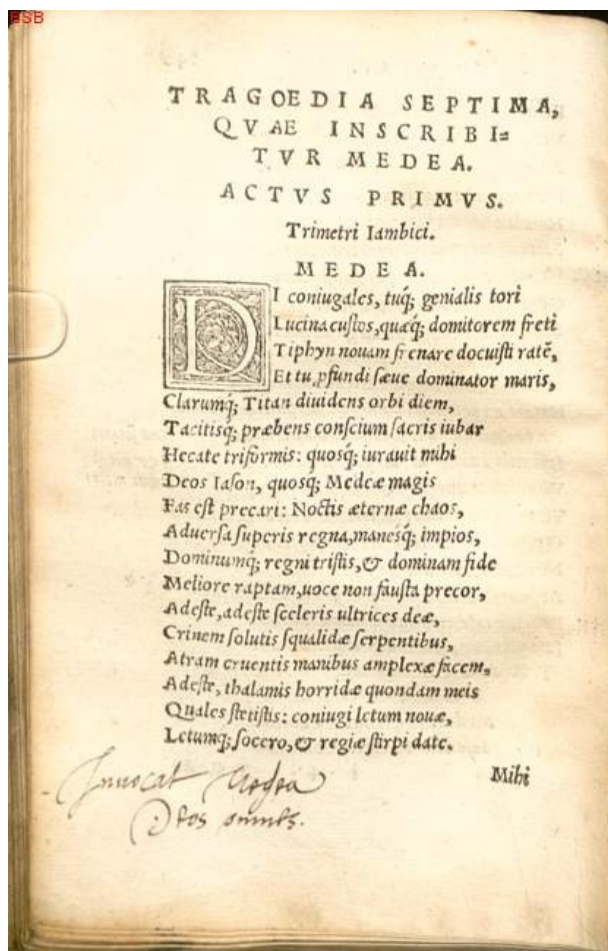 BSB
TRAGOEDIA SEPTIMA,
QVAE INSCRIBI=
TVR MEDEA.
ACTVS PRIMVS.
Trimetri Iambici.
MEDEA.
DI coniugales, tuq́; genialis tori
Lucina custos, quæq́; domitorem freti
Tiphyn nouam frenare docuisti ratē,
Et tu ꝓfundi sæue dominator maris,
Clarumq́; Titan diuidens orbi diem,
Tacitisq́; præbens conscium sacris iubar
Hecate triformis: quosq́; iurauit mihi
Deos Iason, quosq́; Medeæ magis
Fas est precari: Noctis æternæ chaos,
Aduersa superis regna, manesq́; impios,
Dominumq́; regni tristis, & dominam fide
Meliore raptam, uoce non fausta precor,
Adeste, adeste sceleris ultrices deæ,
Crinem solutis squalidæ serpentibus,
Atram cruentis manibus amplexæ facem,
Adeste, thalamis horridæ quondam meis
Quales stetistis: coniugi letum nouæ,
Letumq́; socero, & regiæ stirpi date.
Mihi
Inuocat Medea
Deos omnes.